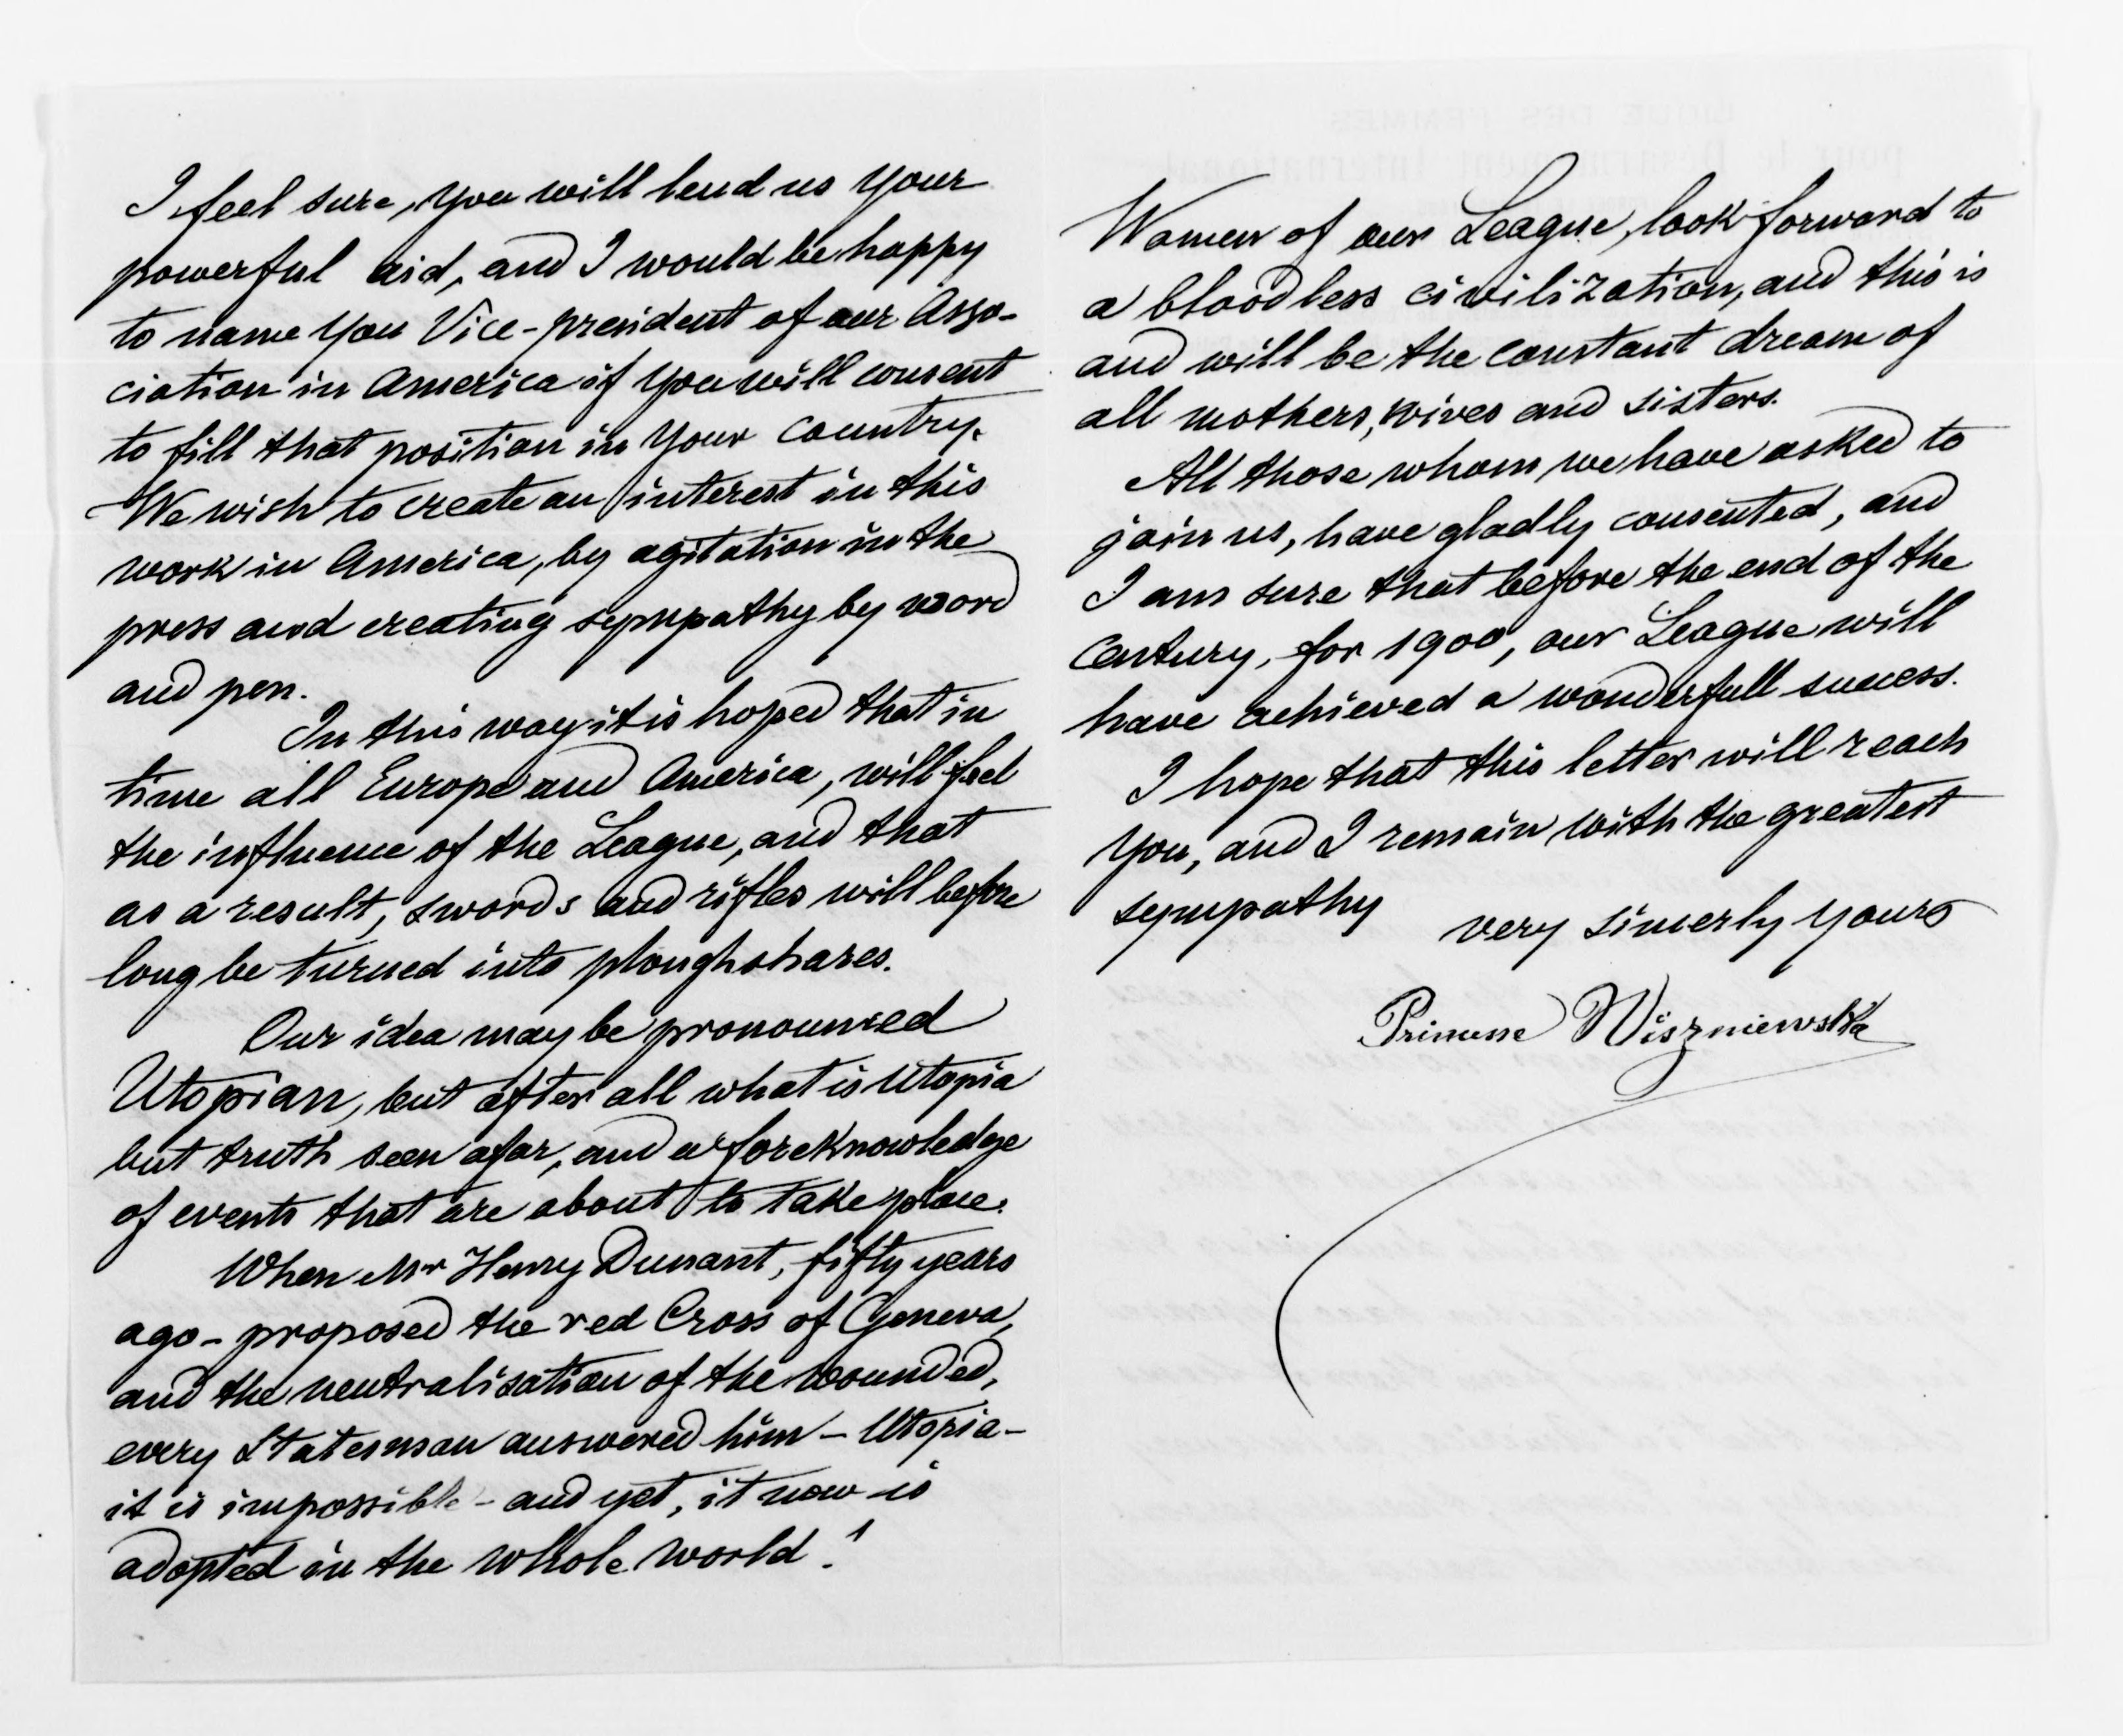 I feel sure, you will lend us your
powerful aid, and I would be happy
to name you Vice-president of our Asso-
ciation in America if you will consent
to fill that position in your country.
We wish to create an interest in this
work in America, by agitation in the
press and creating sympathy by word
and pen.
In this way it is hoped that in
time all Europe and America, will feel
the influence of the League, and that
as a result, swords and rifles will before
long be turned into ploughshares.
Our idea may be pronounced
Utopian, but after all what is Utopia
but truth seen afar, and a foreknowledge
of events that are about to take place.
When Mr Henry Dunant, fifty years
ago - proposed the red Cross of Geneva,
and the neutralisation of the wounded,
every Statesman answered him - Utopia -
it is impossible - and yet, it now is
adopted in the whole world!
Women of our League, look forward to
a bloodless civilization, and this is
and will be the constant dream of
all mothers, wives and sisters.
All those whom we have asked to
join us, have gladly consented, and
I am sure that before the end of the
Century, for 1900, our League will
have achieved a wonderfull success.
I hope that this letter will reach
you, and I remain with the greatest
sympathy
very sincerly yours
Princesse Wiszniewska